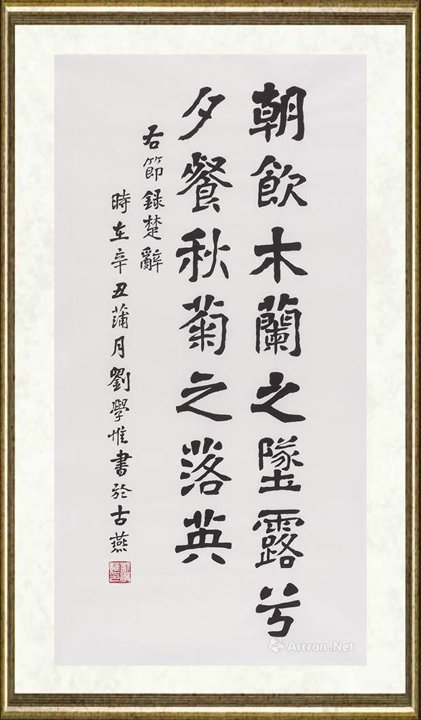 朝飲木蘭之墜露兮
夕餐秋菊之落英
右節錄楚辭
時在辛丑蒲月劉學惟書於古燕
Artron.Net